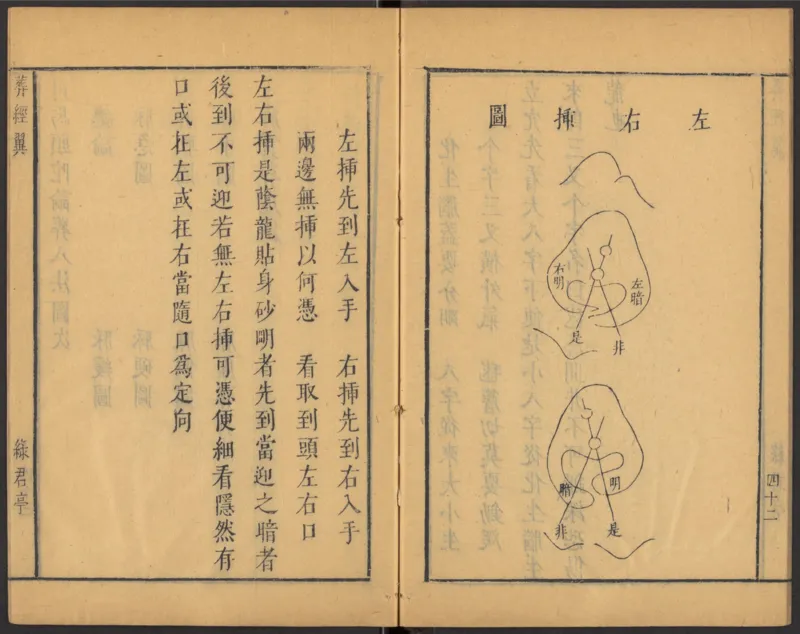 左右挿圖
右明
左暗
是
非
明
暗
非
是
四十二
左挿先到左入手　右挿先到右入手
兩邊無挿以何憑　看取到頭左右口
左右挿是蔭龍貼身砂明者先到當迎之暗者
後到不可迎若無左右挿可憑便細看隱然有
口或在左或在右當隨口為定向
葬經翼
綠君亭